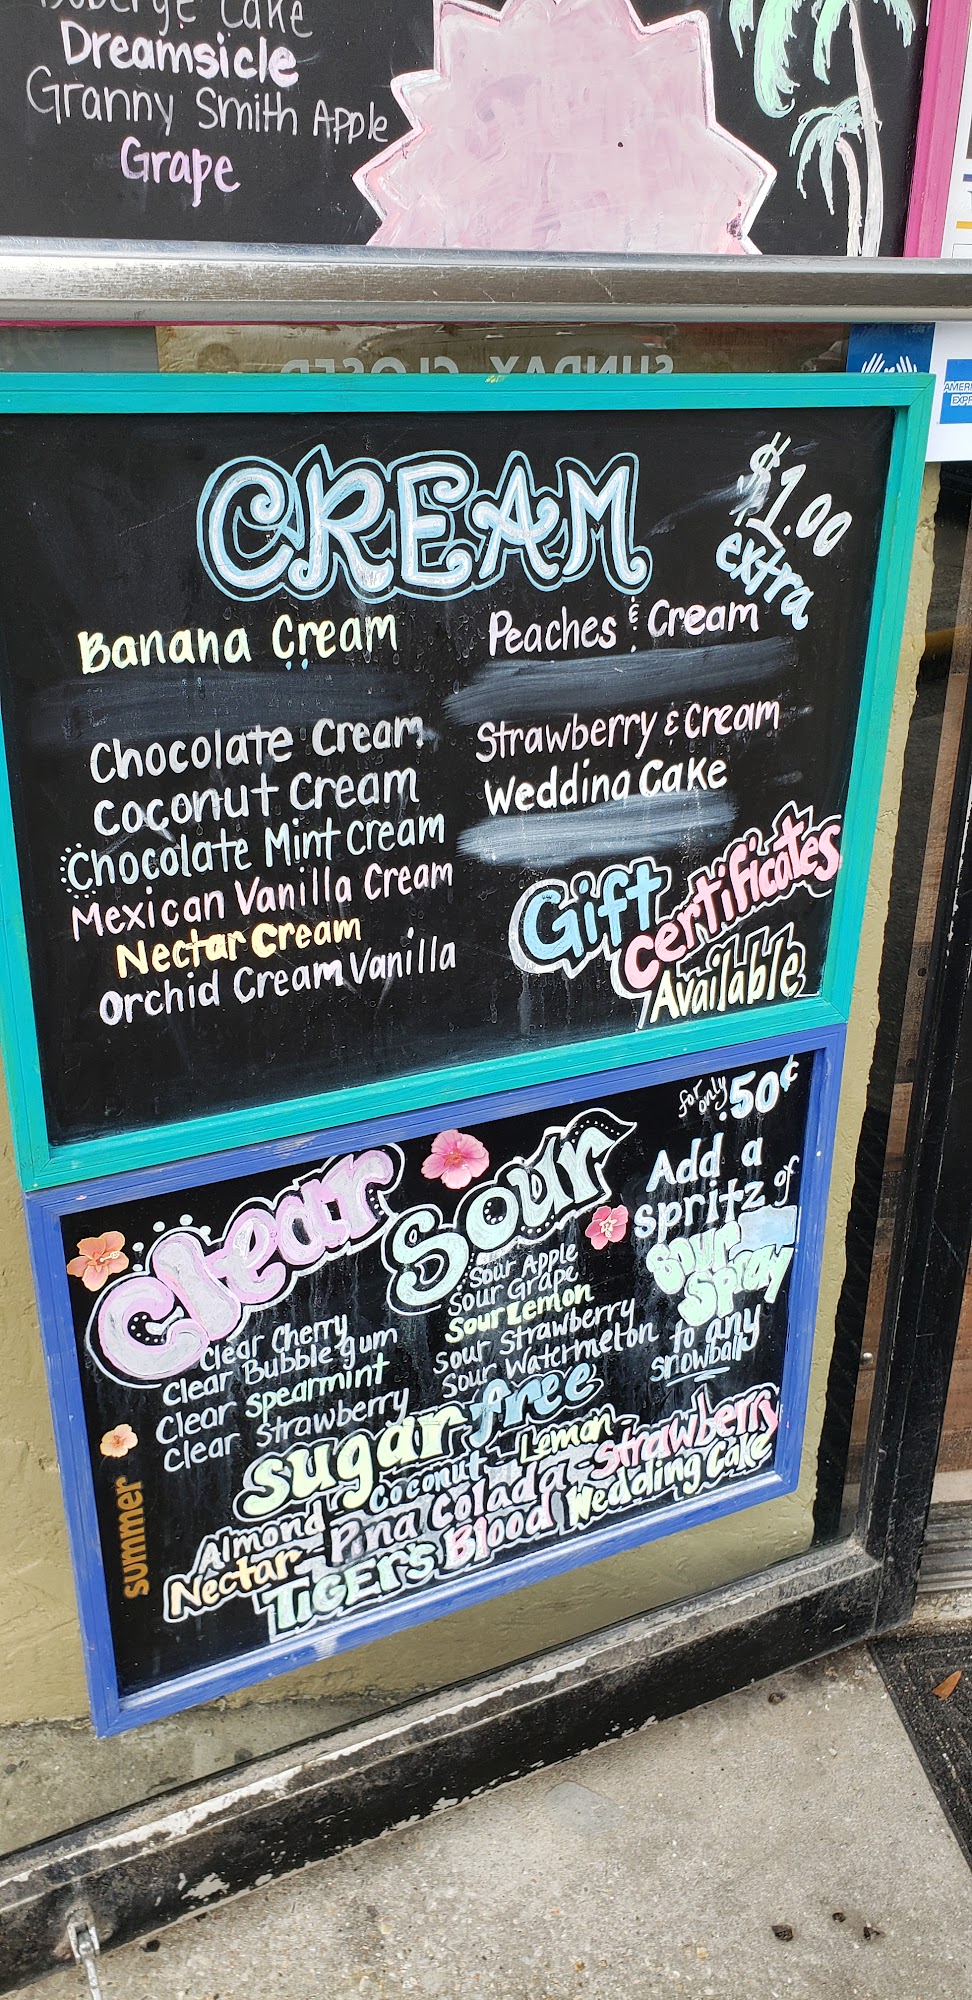 Doberge Cake
Dreamsicle
Granny Smith Apple
Grape
SUNDAY CLOSED
AMERI
EXPR
CREAM
$1.00
extra
Banana Cream
Chocolate Cream
Coconut Cream
Chocolate Mint Cream
Mexican Vanilla Cream
Nectar Cream
Orchid Cream Vanilla
Peaches & Cream
Strawberry & Cream
Wedding Cake
Gift
Certificates
Available
Clear
Clear Cherry
Clear Bubble gum
Clear Spearmint
Clear Strawberry
Sour
Sour Apple
Sour Grape
Sour Lemon
Sour Strawberry
Sour Watermelon
for only .50¢
Add a
spritz of
Sour
Spray
to any
snowball
sugar free
Almond Coconut - Lemon -
Nectar - Pina Colada - Strawberry
TIGER'S Blood Wedding Cake
summer